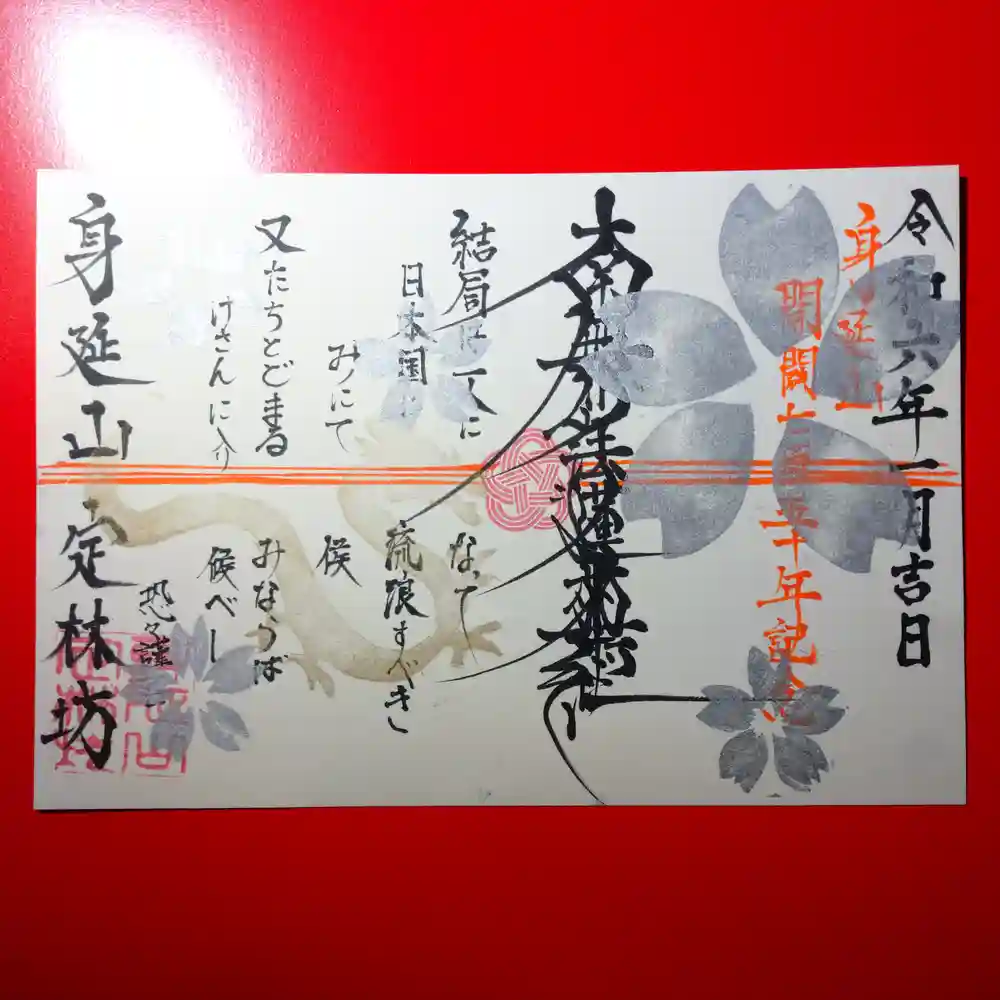 令和六年一月吉日
身延山
開闢七百五十年記念
南無妙法蓮華経
結局は一人に
なって
日本国を
流浪すべき
みにて
候
又たちとどまる
みならば
けさんに入り
候べし
恐々謹言
身延山 定林坊